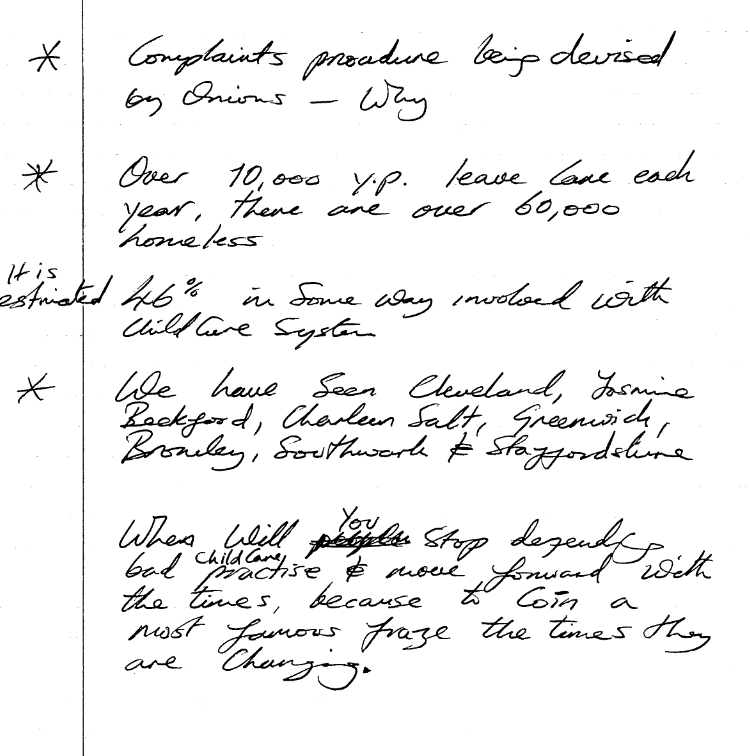 * Complaints procedure being devised
by Onions – Why
* Over 10,000 y.p. leave Care each
year, there are over 60,000
homeless
It is
estimated 46% in Some way involved with
Child Care System
* We have Seen Cleveland, Jasmine
Beckford, Charleen Salt, Greenwich,
Bromley, Southwark & Staffordshire
You
When Will people Stop defending
Child Care
bad practise & move forward with
the times, because to Coin a
most famous fraze the times they
are Changing.